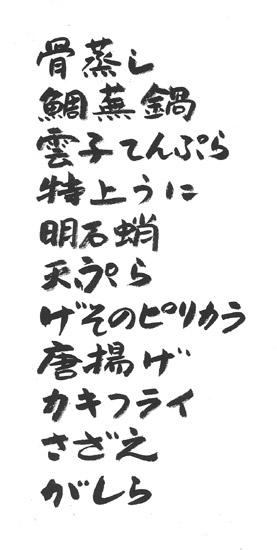 骨蒸し
鯛蕪鍋
雲子てんぷら
特上うに
明石蛸
天ぷら
げそのピリカラ
唐揚げ
カキフライ
さざえ
がしら